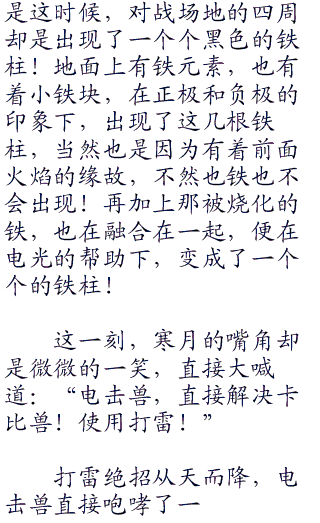 是这时候，对战场地的四周
却是出现了一个个黑色的铁
柱！地面上有铁元素，也有
着小铁块，在正极和负极的
印象下，出现了这几根铁
柱，当然也是因为有着前面
火焰的缘故，不然也铁也不
会出现！再加上那被烧化的
铁，也在融合在一起，便在
电光的帮助下，变成了一个
个的铁柱！
这一刻，寒月的嘴角却
是微微的一笑，直接大喊
道：“电击兽，直接解决卡
比兽！使用打雷！”
打雷绝招从天而降，电
击兽直接咆哮了一